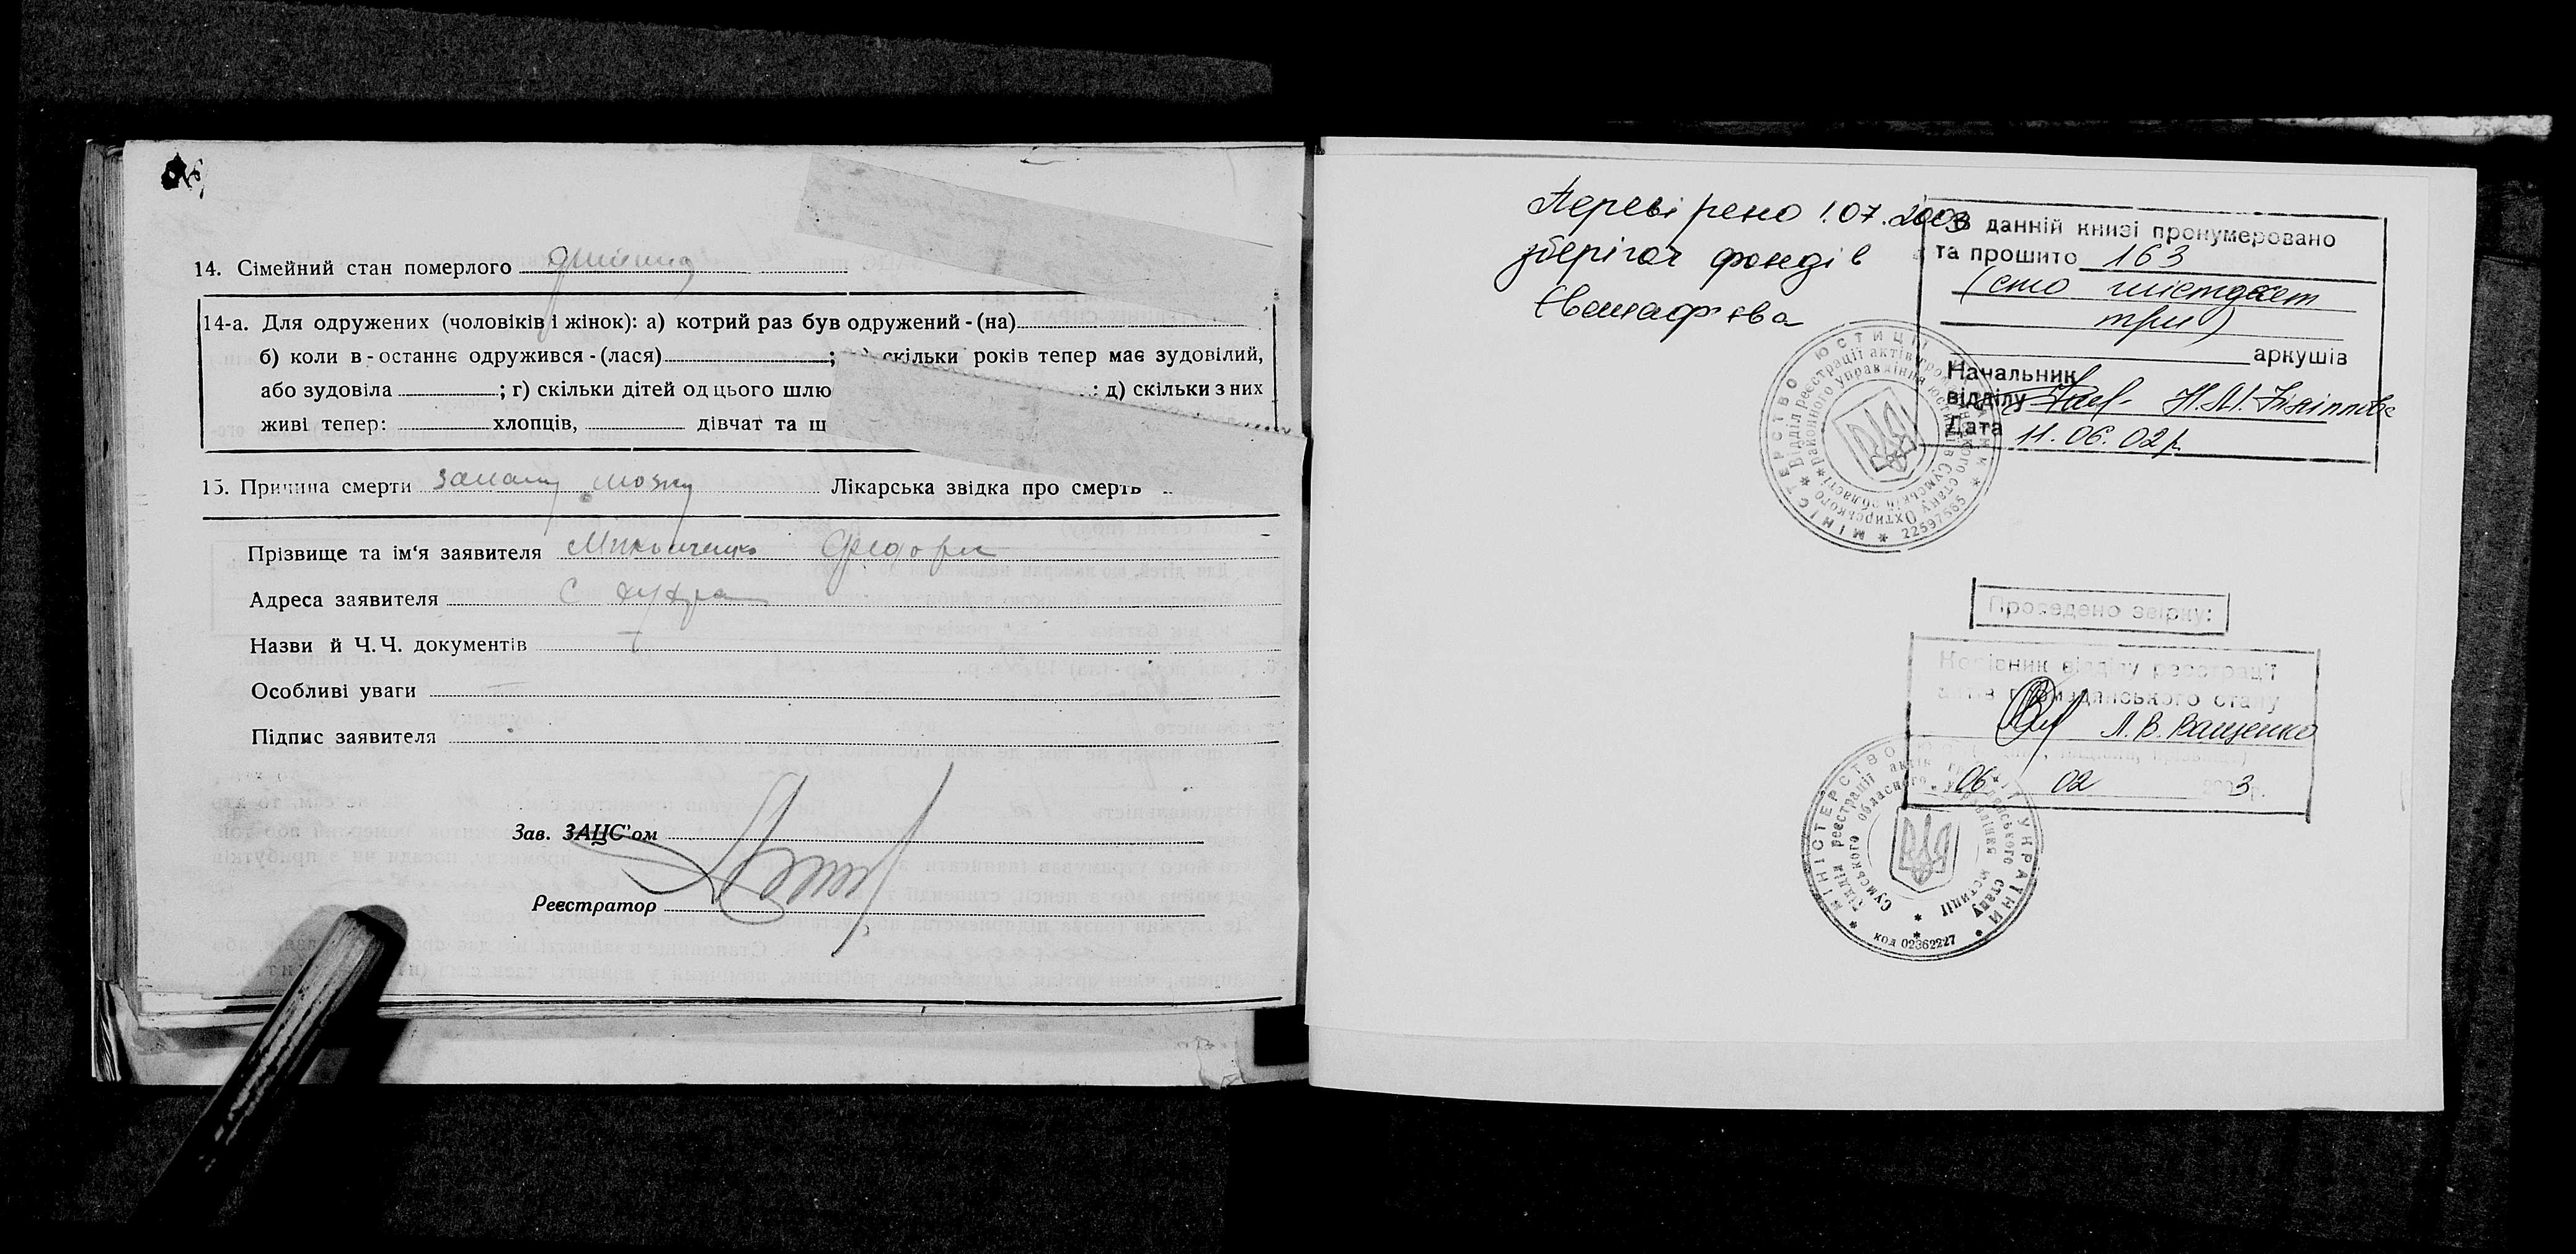 14. Сімейний стан померлого
14-а. Для одружених (чоловіків і жінок): а) котрий раз був одружений - (на)
б) коли в - останнє одружився - (лася) ; скільки років тепер має зудовілий,
або зудовіла ; г) скільки дітей од цього шлю : д) скільки з них
живі тепер: хлопців, дівчат та ш
15. Причина смерти запал мозку Лікарська звідка про смерть
Прізвище та ім'я заявителя Федора
Адреса заявителя с Хухра
Назви й Ч.Ч. документів
Особливі уваги
Підпис заявителя
Зав. ЗАЦС'ом
Реєстратор
Перевірено 1.07.2003
зберігач фондів
Євстаф'єва
В данній книзі пронумеровано
та прошито 163
(сто шістдесят
три)
аркушів
Начальник
відділу
Дата 11.06.02 р.
МІНІСТЕРСТВО ЮСТИЦІЇ
* Відділ реєстрації актів громадянського стану Охтирського *
районного управління юстиції Сумській області
22597565
Проведено звірку:
Керівник відділу реєстрації
актів громадянського стану
Л. В. Ващенко
06 02 2003р.
МІНІСТЕРСТВО ЮСТИЦІЇ УКРАЇНИ
Відділ реєстрації актів громадянського стану
Сумського обласного управління юстиції
код 02362227